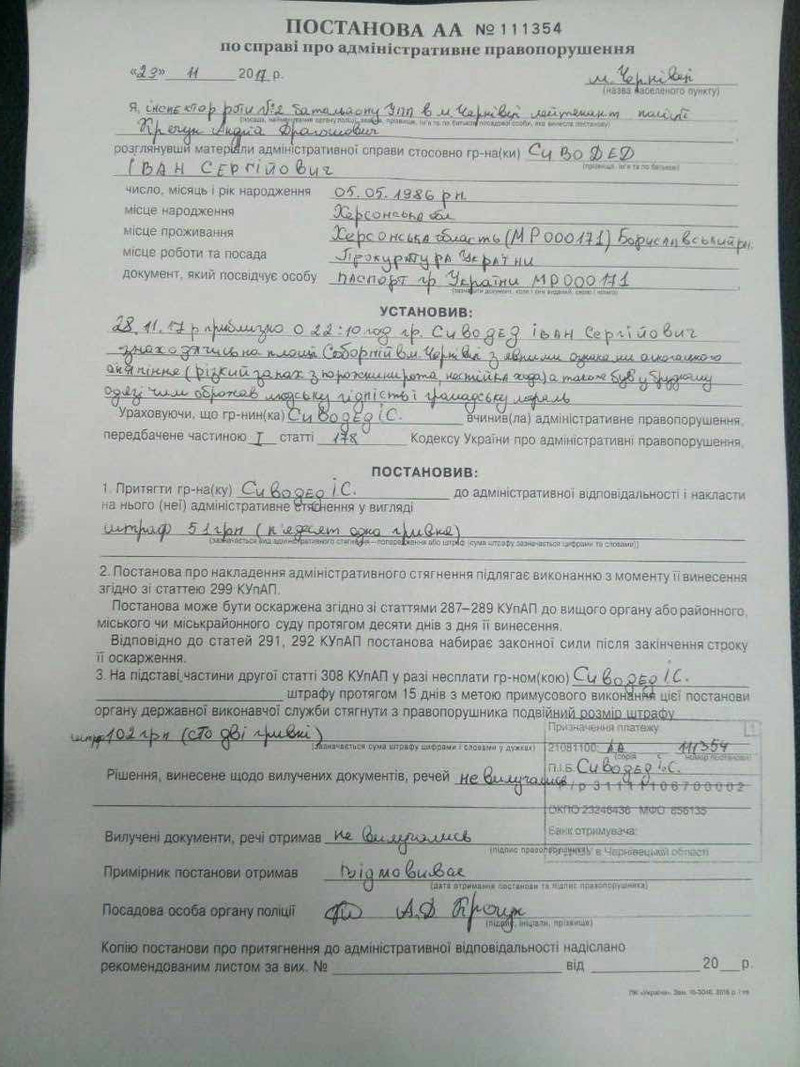 ПОСТАНОВА АА № 111354
по справі про адміністративне правопорушення
«29» 11 2017 р. м. Чернівці
(назва населеного пункту)
Я, інспектор роти №2 батальону УПП в м. Чернівці лейтенант поліції
розглянувши матеріали адміністративної справи стосовно гр-на(ки) СИВОДЕД
(прізвище, ім'я та по батькові)
ІВАН СЕРГІЙОВИЧ
число, місяць і рік народження 05.05.1986 рн
місце народження Херсонська обл
місце проживання Херсонська область (МР000171) Бориславський рн.
місце роботи та посада Прокуратура України
документ, який посвідчує особу паспорт гр України МР000171
УСТАНОВИВ:
28.11.17 р приблизно о 22:10 год гр. Сиводед Іван Сергійович
знаходячись на площі Соборній в м. Чернівці з явними ознаками алкогольного
(різкий запах з порожнини рота, хода) а також був у брудному
одязі чим ображав людську гідність і громадську мораль
Ураховуючи, що гр-нин(ка) Сиводед І.С. вчинив(ла) адміністративне правопорушення,
передбачене частиною І статті 178 Кодексу України про адміністративні правопорушення,
ПОСТАНОВИВ:
1. Притягти гр-на(ку) Сиводед І.С. до адміністративної відповідальності і накласти
на нього (неї) адміністративне стягнення у вигляді
штраф 51 грн (п'ядесят одна гривна)
(зазначається вид адміністративного стягнення – попередження або штраф (сума штрафу зазначається цифрами та словами))
2. Постанова про накладення адміністративного стягнення підлягає виконанню з моменту її винесення
згідно зі статтею 299 КУпАП.
Постанова може бути оскаржена згідно зі статтями 287–289 КУпАП до вищого органу або районного,
міського чи міськрайонного суду протягом десяти днів з дня її винесення.
Відповідно до статей 291, 292 КУпАП постанова набирає законної сили після закінчення строку
її оскарження.
3. На підставі частини другої статті 308 КУпАП у разі несплати гр-ном(кою) Сиводед І.С.
штрафу протягом 15 днів з метою примусового виконання цієї постанови
органу державної виконавчої служби стягнути з правопорушника подвійний розмір штрафу
штраф 102 грн (сто дві гривні)
(зазначається сума штрафу цифрами і словами у дужках)
Призначення платежу
21081100; АА 111354
серія номер постанови
П.І.Б. Сиводед І.С.
Рішення, винесене щодо вилучених документів, речей не вилучались
ОКПО 23246436 МФО 856135
Банк отримувача:
в Чернівецькій області
Вилучені документи, речі отримав не вилучались
(підпис правопорушника)
Примірник постанови отримав відмовився
(дата отримання постанови та підпис правопорушника)
Посадова особа органу поліції А.Д.
(підпис, ініціали, прізвище)
Копію постанови про притягнення до адміністративної відповідальності надіслано
рекомендованим листом за вих. № від 20 р.